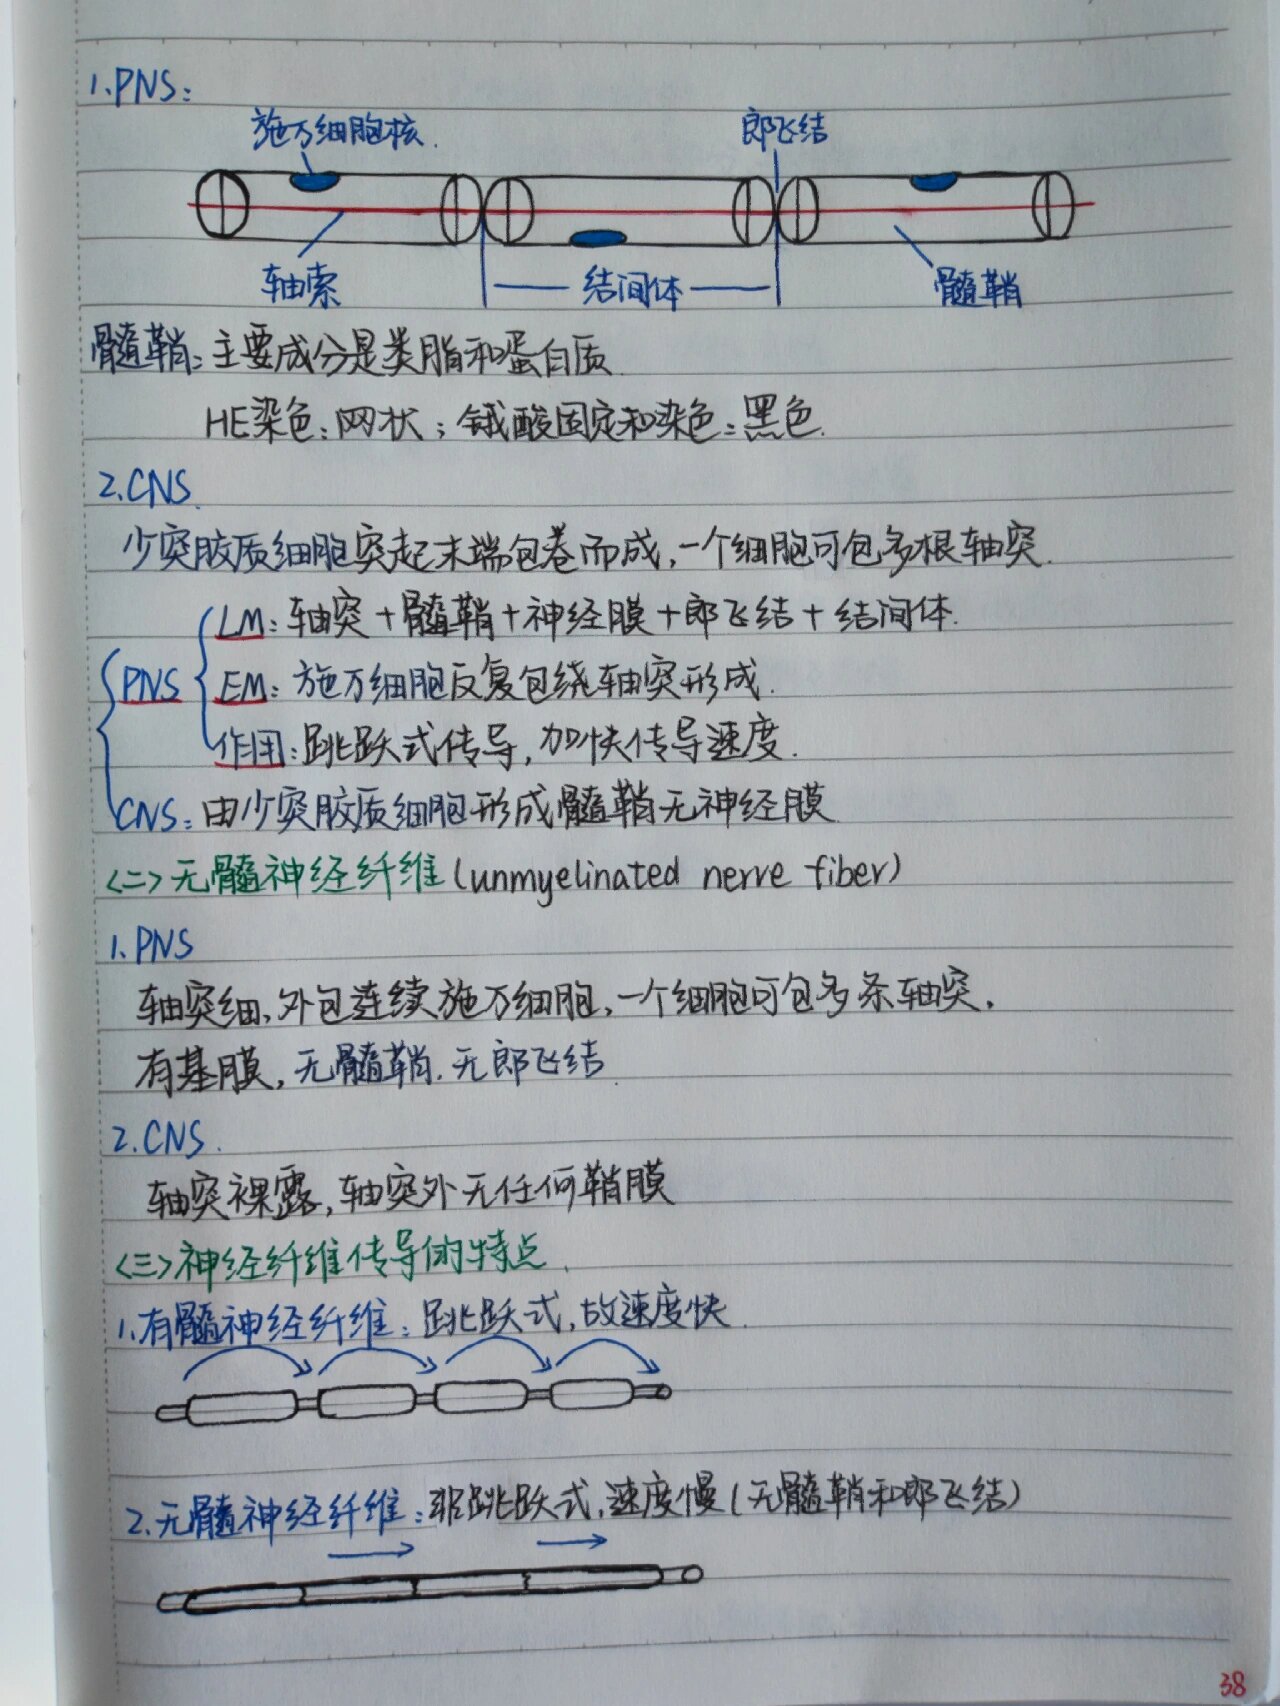 1.PNS:
施万细胞核
郎飞结
轴索
结间体
髓鞘
髓鞘:主要成分是类脂和蛋白质
HE染色:网状;锇酸固定和染色:黑色.
2.CNS.
少突胶质细胞突起末端包卷而成,一个细胞可包多根轴突.
LM:轴突+髓鞘+神经膜+郎飞结+结间体.
PNS EM:施万细胞反复包绕轴突形成.
作用:跳跃式传导,加快传导速度.
CNS:由少突胶质细胞形成髓鞘无神经膜
<二>无髓神经纤维(unmyelinated nerve fiber)
1.PNS
轴突细,外包连续施万细胞,一个细胞可包多条轴突.
有基膜,无髓鞘.无郎飞结.
2.CNS.
轴突裸露,轴突外无任何鞘膜
<三>神经纤维传导的特点.
1.有髓神经纤维:跳跃式,故速度快.
2.无髓神经纤维:非跳跃式,速度慢(无髓鞘和郎飞结)
38